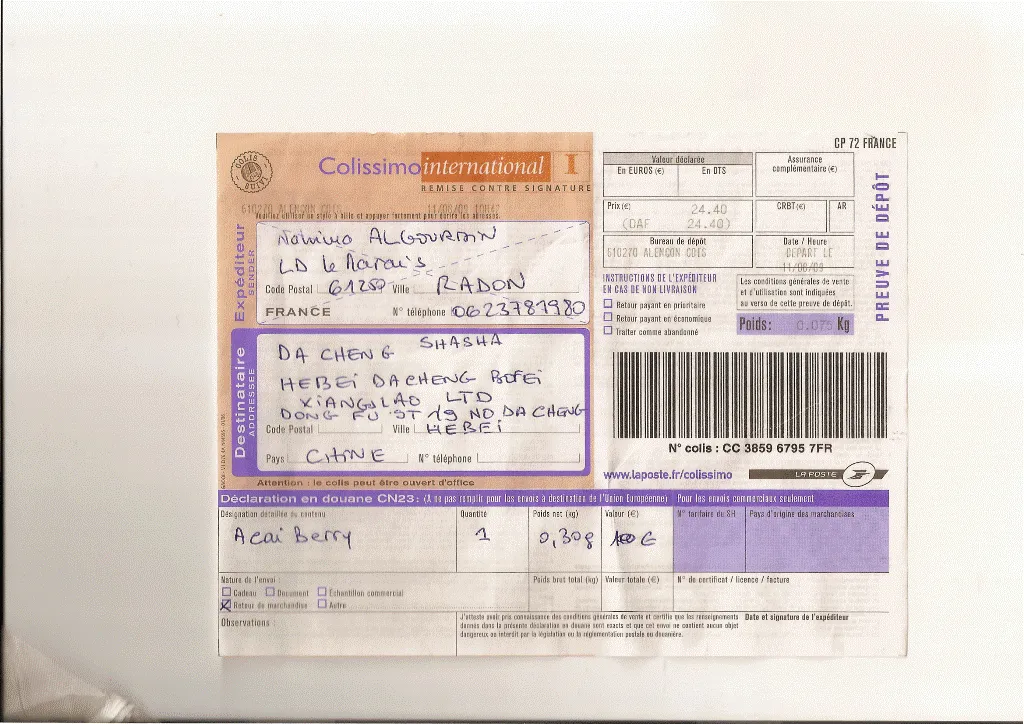 CP 72 FRANCE
COLIS
Colissimo international I
REMISE CONTRE SIGNATURE
610270 ALENCON CDIS 11/08/09
Veuillez utiliser un stylo à bille et appuyer fortement pour écrire les adresses.
Expéditeur
SENDER
ALGOURDIN
LD le Marais
Code Postal 61250 Ville RADON
FRANCE N° téléphone 0623781980
Destinataire
ADDRESSEE
DA CHENG SHASHA
HEBEI DACHENG BOFEI
XIANGJIAO LTD
DONG FU ST 19 NO DA CHENG
Code Postal Ville HEBEI
Pays CHINE N° téléphone
Attention : le colis peut être ouvert d'office
Valeur déclarée
En EUROS (€) En DTS
Assurance
complémentaire (€)
Prix (€) 24.40
(OAF 24.40)
CRBT (€) AR
Bureau de dépôt
610270 ALENCON CDIS
Date / Heure
DEPART LE
11/08/09
INSTRUCTIONS DE L'EXPÉDITEUR
EN CAS DE NON LIVRAISON
Retour payant en prioritaire
Retour payant en économique
Traiter comme abandonné
Les conditions générales de vente
et d'utilisation sont indiquées
au verso de cette preuve de dépôt.
Poids: 0.075 Kg
PREUVE DE DÉPÔT
N° colis : CC 3859 6795 7FR
www.laposte.fr/colissimo LA POSTE
Déclaration en douane CN23 : (A ne pas remplir pour les envois à destination de l'Union Européenne) Pour les envois commerciaux seulement
Désignation détaillée du contenu Quantité Poids net (kg) Valeur (€) N° tarifaire du SH Pays d'origine des marchandises
Acai Berry 1 0,30g 100 €
Nature de l'envoi : Poids brut total (kg) Valeur totale (€) N° de certificat / licence / facture
Cadeau Document Echantillon commercial
Retour de marchandise Autre
Observations :
J'atteste avoir pris connaissance des conditions générales de vente et certifie que les renseignements
donnés dans la présente déclaration en douane sont exacts et que cet envoi ne contient aucun objet
dangereux ou interdit par la législation ou la réglementation postale ou douanière.
Date et signature de l'expéditeur